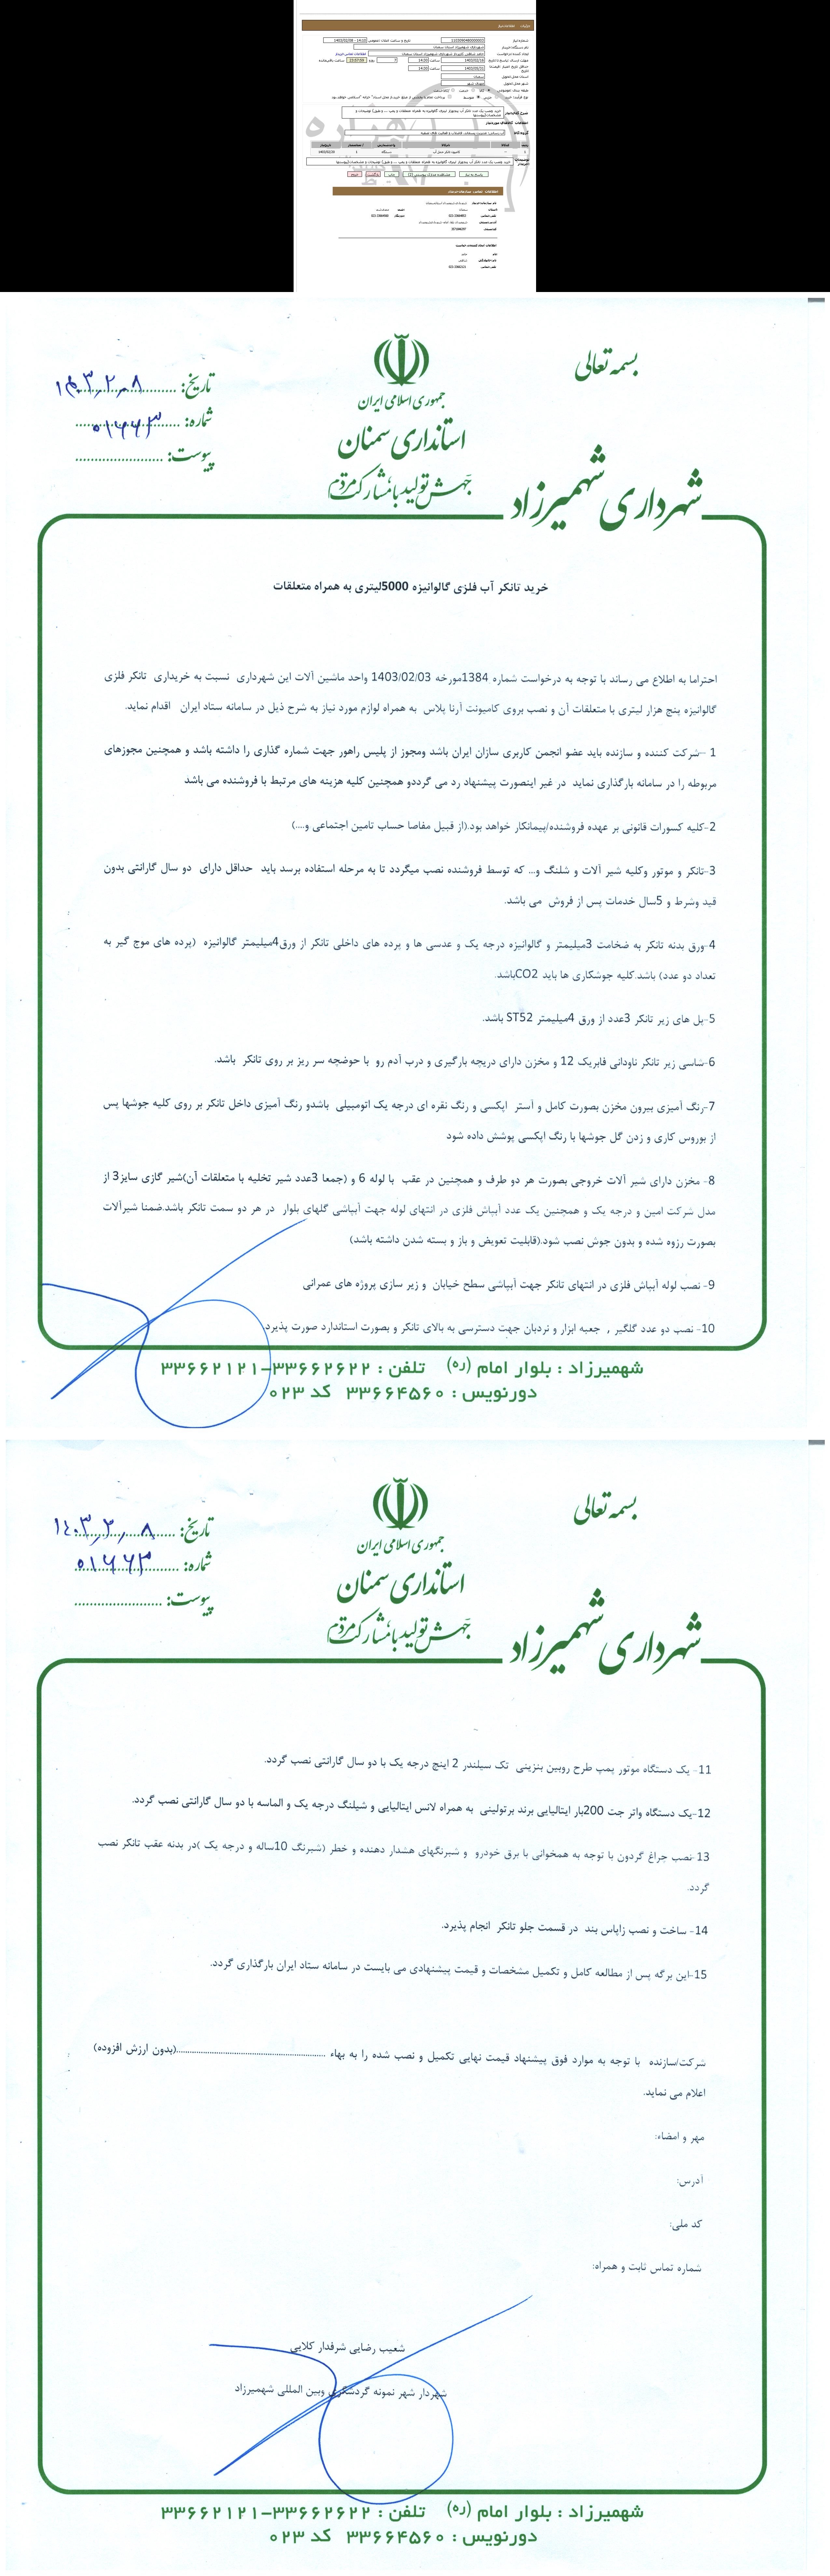 بسمه تعالی
جمهوری اسلامی ایران
استانداری سمنان
جهش تولید با مشارکت مردم
شهرداری شهمیرزاد
تاریخ: ۱۴۰۳٫۲٫۸
شماره: ۰۱۶۶۳
پیوست:
خرید تانکر آب فلزی گالوانیزه 5000لیتری به همراه متعلقات
احتراما به اطلاع می رساند با توجه به درخواست شماره 1384مورخه 1403/02/03 واحد ماشین آلات این شهرداری نسبت به خریداری تانکر فلزی
گالوانیزه پنج هزار لیتری با متعلقات آن و نصب بروی کامیونت آرنا پلاس به همراه لوازم مورد نیاز به شرح ذیل در سامانه ستاد ایران اقدام نماید.
1 –شرکت کننده و سازنده باید عضو انجمن کاربری سازان ایران باشد ومجوز از پلیس راهور جهت شماره گذاری را داشته باشد و همچنین مجوزهای
مربوطه را در سامانه بارگذاری نماید در غیر اینصورت پیشنهاد رد می گرددو همچنین کلیه هزینه های مرتبط با فروشنده می باشد
2-کلیه کسورات قانونی بر عهده فروشنده/پیمانکار خواهد بود.(از قبیل مفاصا حساب تامین اجتماعی و....)
3-تانکر و موتور وکلیه شیر آلات و شلنگ و... که توسط فروشنده نصب میگردد تا به مرحله استفاده برسد باید حداقل دارای دو سال گارانتی بدون
قید وشرط و 5سال خدمات پس از فروش می باشد.
4-ورق بدنه تانکر به ضخامت 3میلیمتر و گالوانیزه درجه یک و عدسی ها و پرده های داخلی تانکر از ورق4میلیمتر گالوانیزه (پرده های موج گیر به
تعداد دو عدد) باشد.کلیه جوشکاری ها باید CO2باشد.
5-پل های زیر تانکر 3عدد از ورق 4میلیمتر ST52 باشد.
6-شاسی زیر تانکر ناودانی فابریک 12 و مخزن دارای دریچه بارگیری و درب آدم رو با حوضچه سر ریز بر روی تانکر باشد.
7-رنگ آمیزی بیرون مخزن بصورت کامل و آستر اپکسی و رنگ نقره ای درجه یک اتومبیلی باشدو رنگ آمیزی داخل تانکر بر روی کلیه جوشها پس
از بوروس کاری و زدن گل جوشها با رنگ اپکسی پوشش داده شود
8- مخزن دارای شیر آلات خروجی بصورت هر دو طرف و همچنین در عقب با لوله 6 و (جمعا 3عدد شیر تخلیه با متعلقات آن)شیر گازی سایز3 از
مدل شرکت امین و درجه یک و همچنین یک عدد آبپاش فلزی در انتهای لوله جهت آبپاشی گلهای بلوار در هر دو سمت تانکر باشد.ضمنا شیرآلات
بصورت رزوه شده و بدون جوش نصب شود.(قابلیت تعویض و باز و بسته شدن داشته باشد)
9- نصب لوله آبپاش فلزی در انتهای تانکر جهت آبپاشی سطح خیابان و زیر سازی پروژه های عمرانی
10- نصب دو عدد گلگیر , جعبه ابزار و نردبان جهت دسترسی به بالای تانکر و بصورت استاندارد صورت پذیرد.
شهمیرزاد : بلوار امام (ره) تلفن : ۳۳۶۶۲۶۲۲-۳۳۶۶۲۱۲۱
دورنویس : ۳۳۶۶۴۵۶۰ کد ۰۲۳
بسمه تعالی
جمهوری اسلامی ایران
استانداری سمنان
جهش تولید با مشارکت مردم
شهرداری شهمیرزاد
تاریخ: ۱۴۰۳٫۲٫۸
شماره: ۰۱۶۶۳
پیوست:
11- یک دستگاه موتور پمپ طرح روبین بنزینی تک سیلندر 2 اینچ درجه یک با دو سال گارانتی نصب گردد.
12-یک دستگاه واتر جت 200بار ایتالیایی برند برتولینی به همراه لانس ایتالیایی و شیلنگ درجه یک و الماسه با دو سال گارانتی نصب گردد.
13-نصب چراغ گردون با توجه به همخوانی با برق خودرو و شبرنگهای هشدار دهنده و خطر (شبرنگ 10ساله و درجه یک )در بدنه عقب تانکر نصب
گردد.
14- ساخت و نصب زاپاس بند در قسمت جلو تانکر انجام پذیرد.
15-این برگه پس از مطالعه کامل و تکمیل مشخصات و قیمت پیشنهادی می بایست در سامانه ستاد ایران بارگذاری گردد.
شرکت/سازنده با توجه به موارد فوق پیشنهاد قیمت نهایی تکمیل و نصب شده را به بهاء ............................(بدون ارزش افزوده)
اعلام می نماید.
مهر و امضاء:
آدرس:
کد ملی:
شماره تماس ثابت و همراه:
شعیب رضایی شرفدار کلایی
شهردار شهر نمونه گردشگری وبین المللی شهمیرزاد
شهمیرزاد : بلوار امام (ره) تلفن : ۳۳۶۶۲۶۲۲-۳۳۶۶۲۱۲۱
دورنویس : ۳۳۶۶۴۵۶۰ کد ۰۲۳